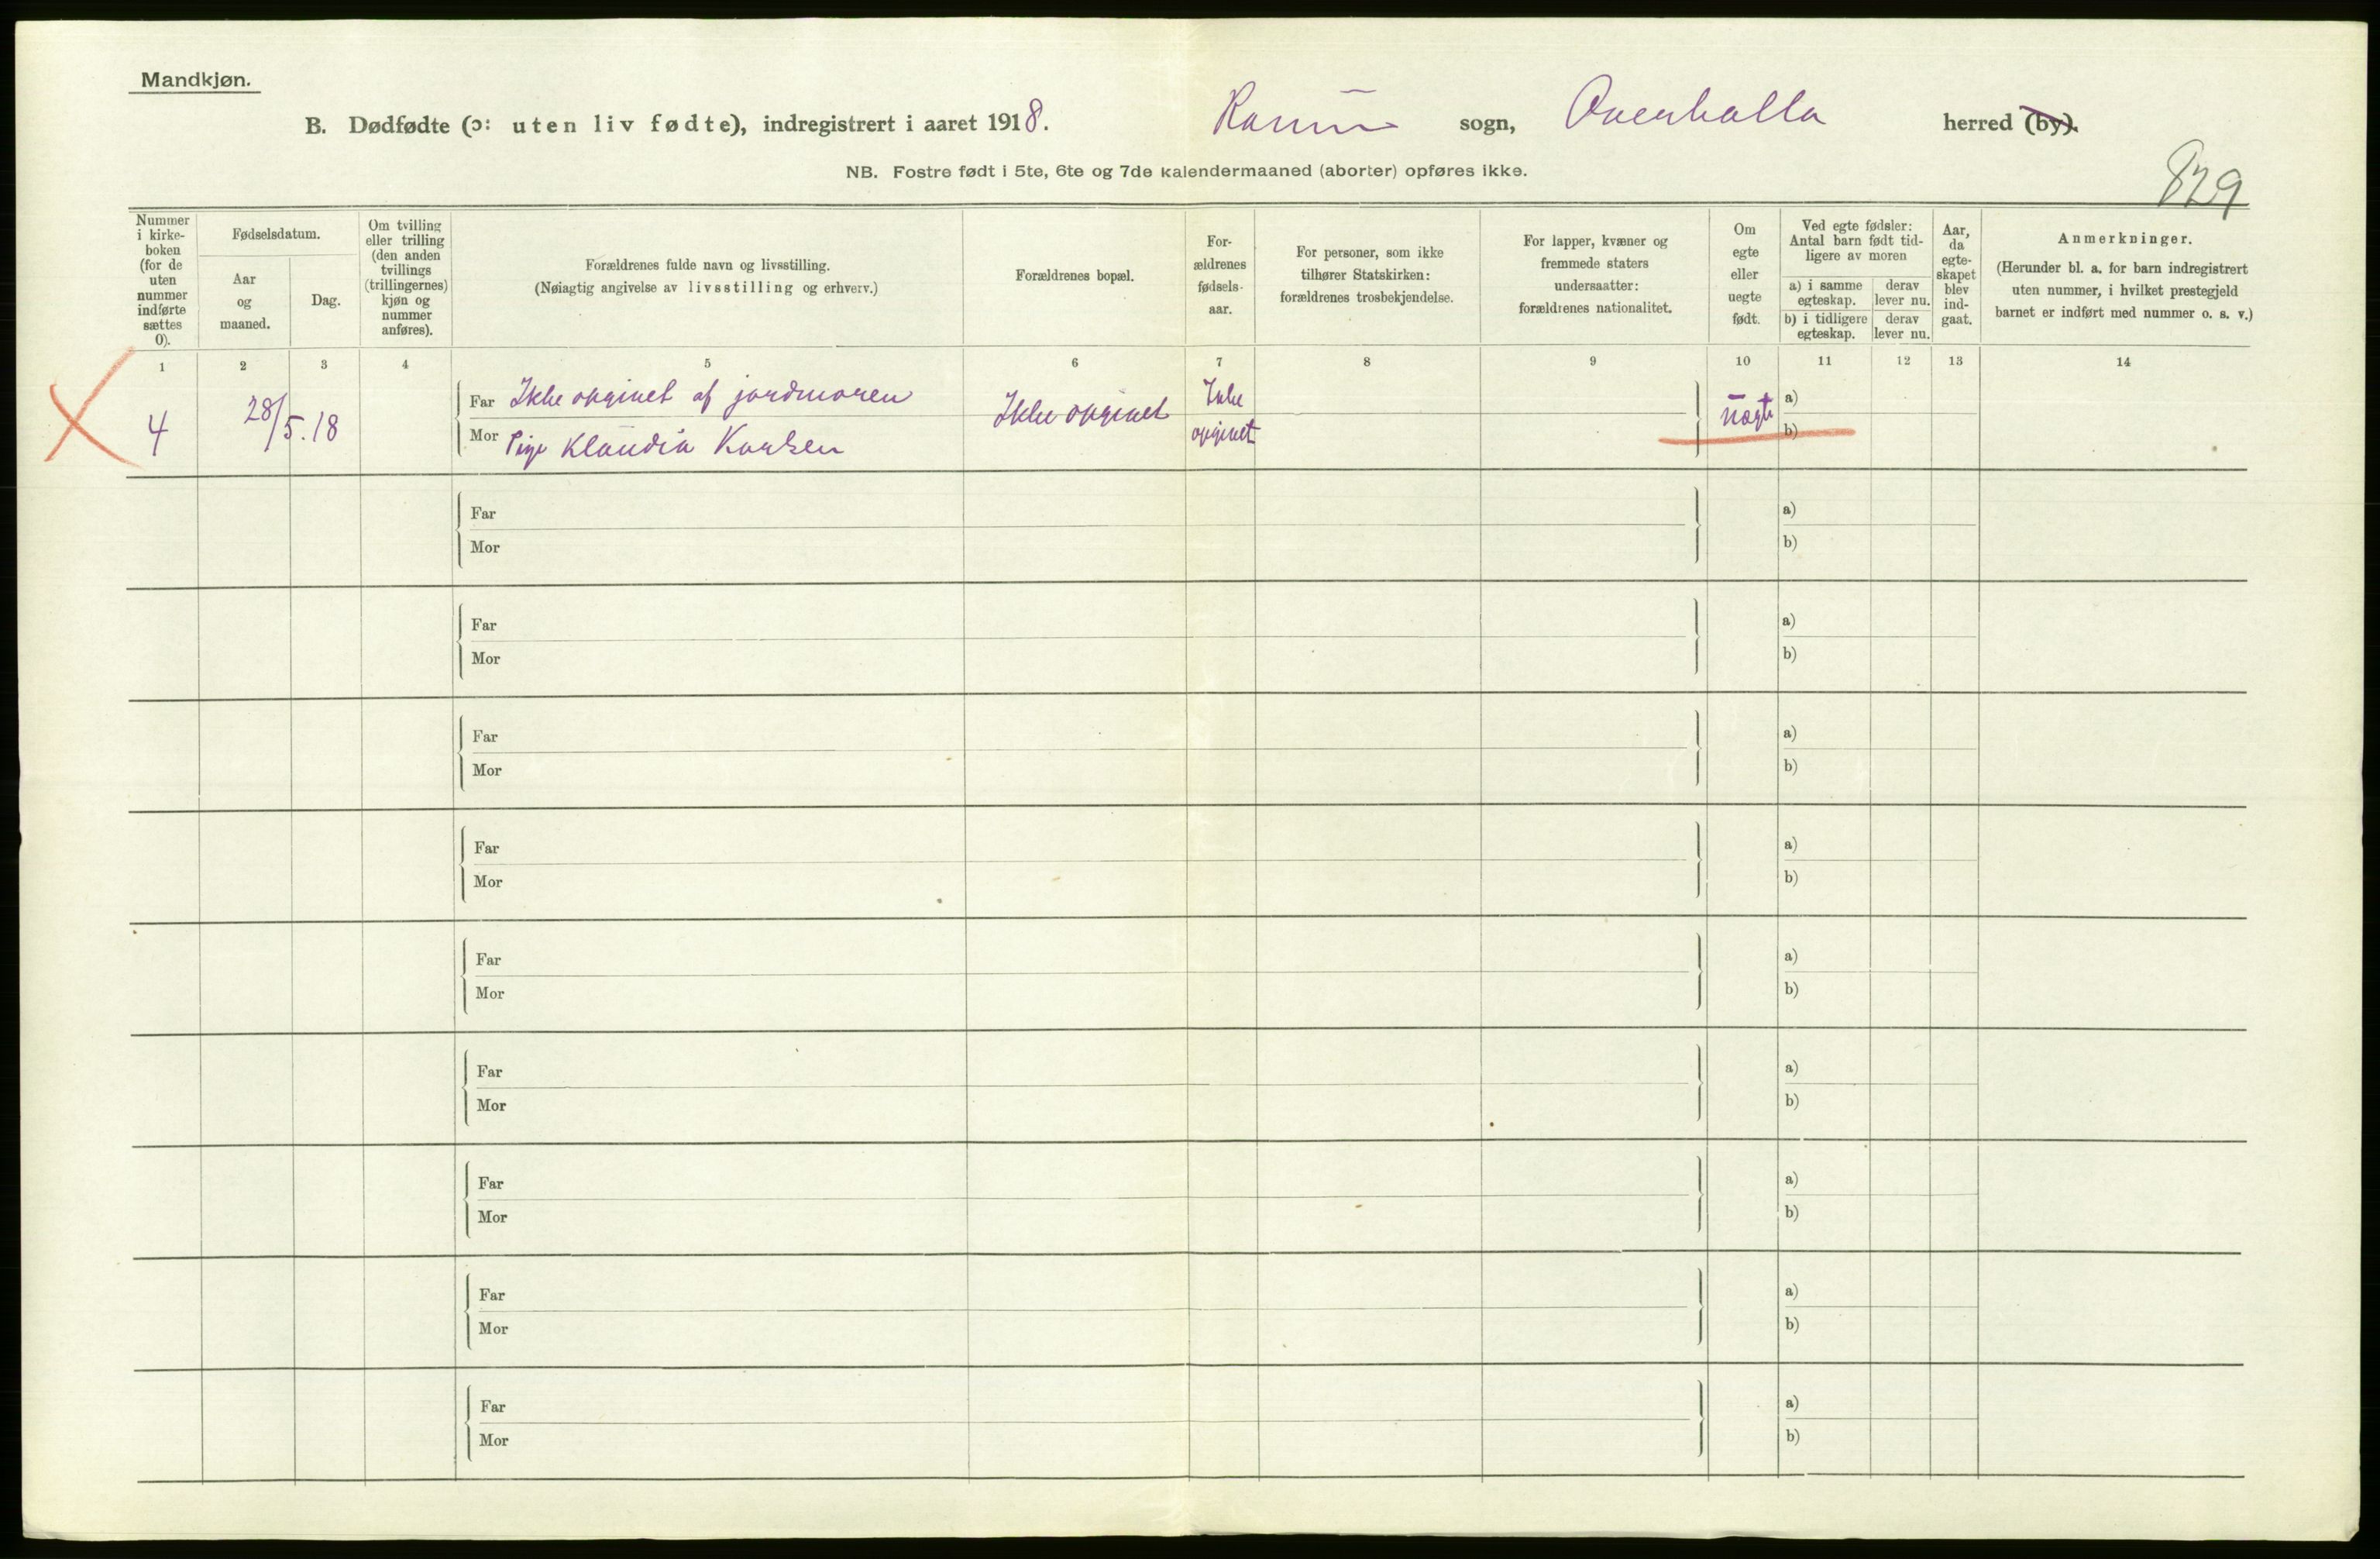 Mandkjøn.
B. Dødfødte (ɔ: uten liv fødte), indregistrert i aaret 1918. Ranem sogn, Overhalla herred (by).
NB. Fostre født i 5te, 6te og 7de kalendermaaned (aborter) opføres ikke.
829
Nummer i kirke-boken (for de uten nummer indførte sættes 0).
Fødselsdatum.
Aar og maaned.
Dag.
Om tvilling eller trilling (den anden tvillings (trillingernes) kjøn og nummer anføres).
Forældrenes fulde navn og livsstilling.
(Nøiagtig angivelse av livsstilling og erhverv.)
Forældrenes bopæl.
For-ældrenes fødsels-aar.
For personer, som ikke tilhører Statskirken: forældrenes trosbekjendelse.
For lapper, kvæner og fremmede staters undersaatter: forældrenes nationalitet.
Om egte eller uegte født.
Ved egte fødsler: Antal barn født tid-ligere av moren
a) i samme egteskap.
derav lever nu.
b) i tidligere egteskap.
derav lever nu.
Aar, da egte-skapet blev ind-gaat.
Anmerkninger.
(Herunder bl. a. for barn indregistrert uten nummer, i hvilket prestegjeld barnet er indført med nummer o. s. v.)
1 2 3 4 5 6 7 8 9 10 11 12 13 14
4 28/5.18
Far Ikke opgivet af jordmoren
Mor Pige Klaudia Karlsen
Ikke opgivet
Ikke
opgivet
uegte
a)
b)
Far
Mor
a)
b)
Far
Mor
a)
b)
Far
Mor
a)
b)
Far
Mor
a)
b)
Far
Mor
a)
b)
Far
Mor
a)
b)
Far
Mor
a)
b)
Far
Mor
a)
b)
Far
Mor
a)
b)